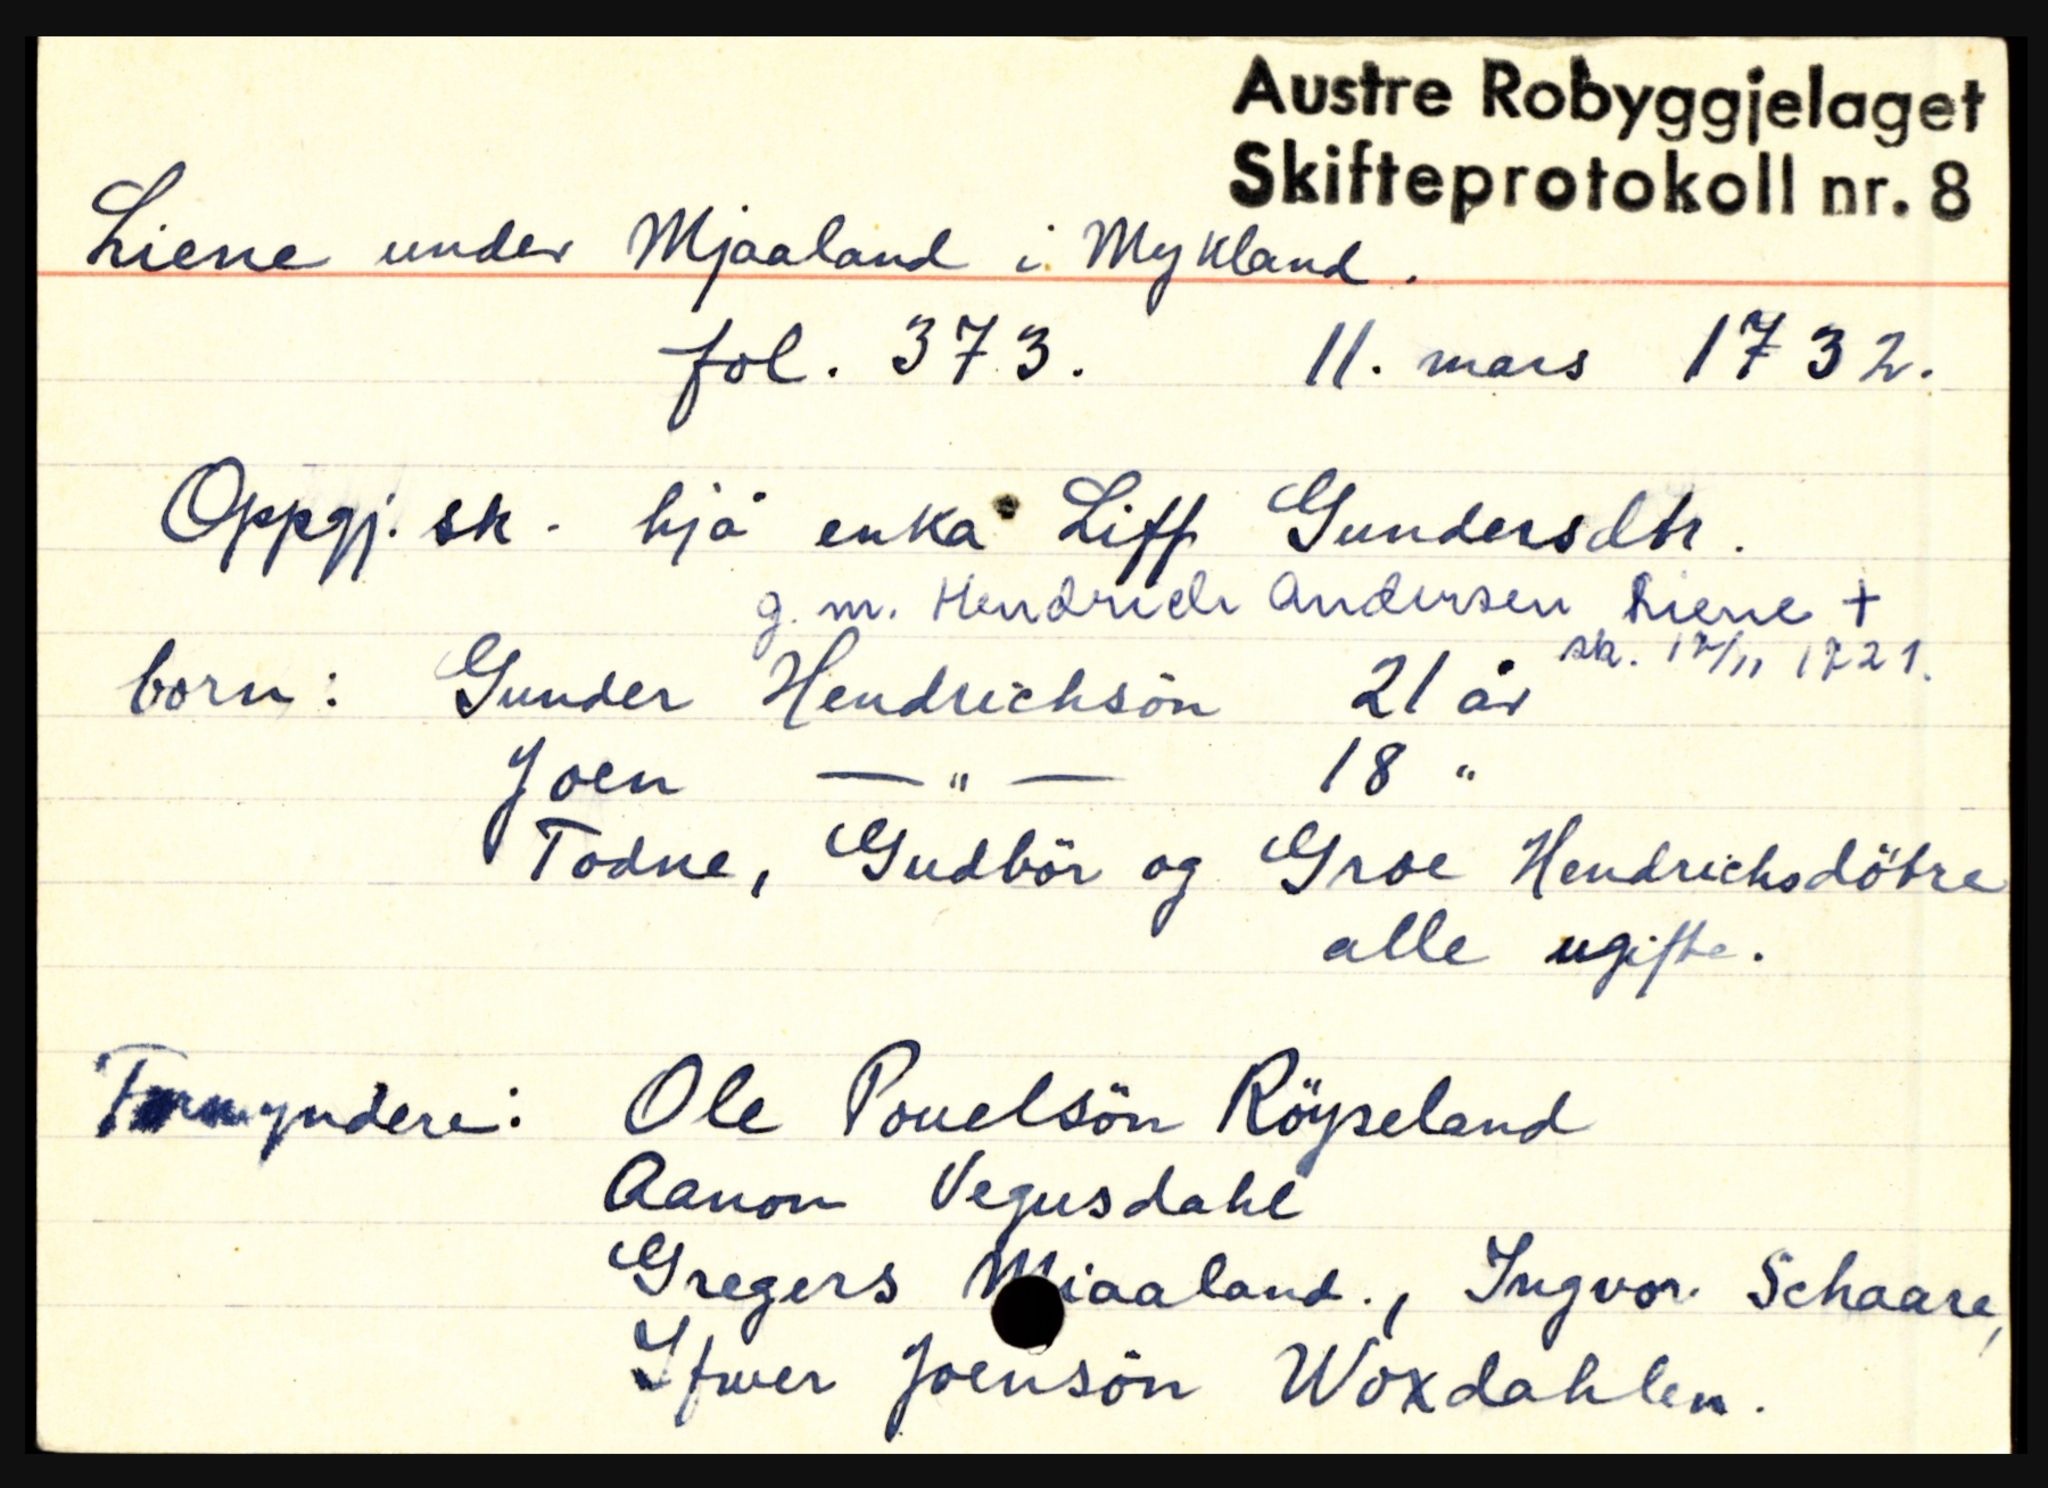 Austre Robyggjelaget
Skifteprotokoll nr. 8
Liene under Mjaaland i Mykland.
fol. 373. 11. mars 1732.
Oppgj. sk. hjå enka Liff Gundersdtr.
g. m. Hendrich Andersen Liene +
sk. 17/11 1721.
born: Gunder Hendrichsön 21 år
Joen — " — 18 "
Todne, Gudbör og Groe Hendrichsdötre
alle ugifte.
Formyndere: Ole Pouelsön Röyseland
Aanon Vegusdahl
Gregers Miaaland., Ingvor. Schaare,
Ifwer Joensön Woxdahlen.